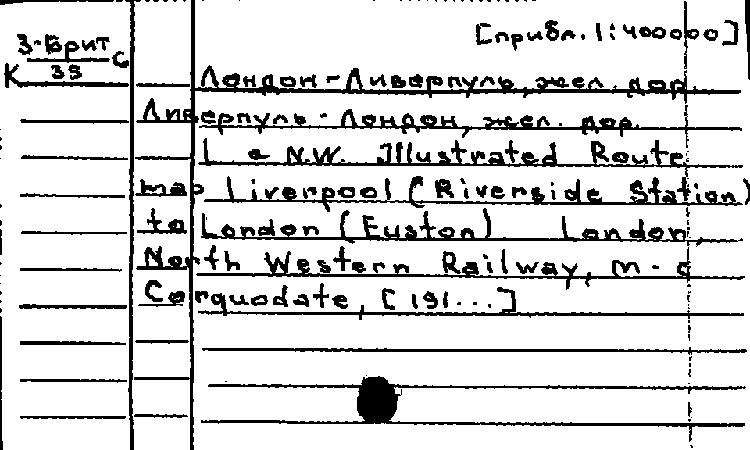 [прибл. 1:400000]
З-Брит
К 35 с
Лондон-Ливерпуль, жел. дор.
Ливерпуль - Лондон, жел. дор.
L a N.W. Illustrated Route
map Liverpool (Riverside Station)
to London (Euston) London,
North Western Railway, m-c
Corquodate, [191...]